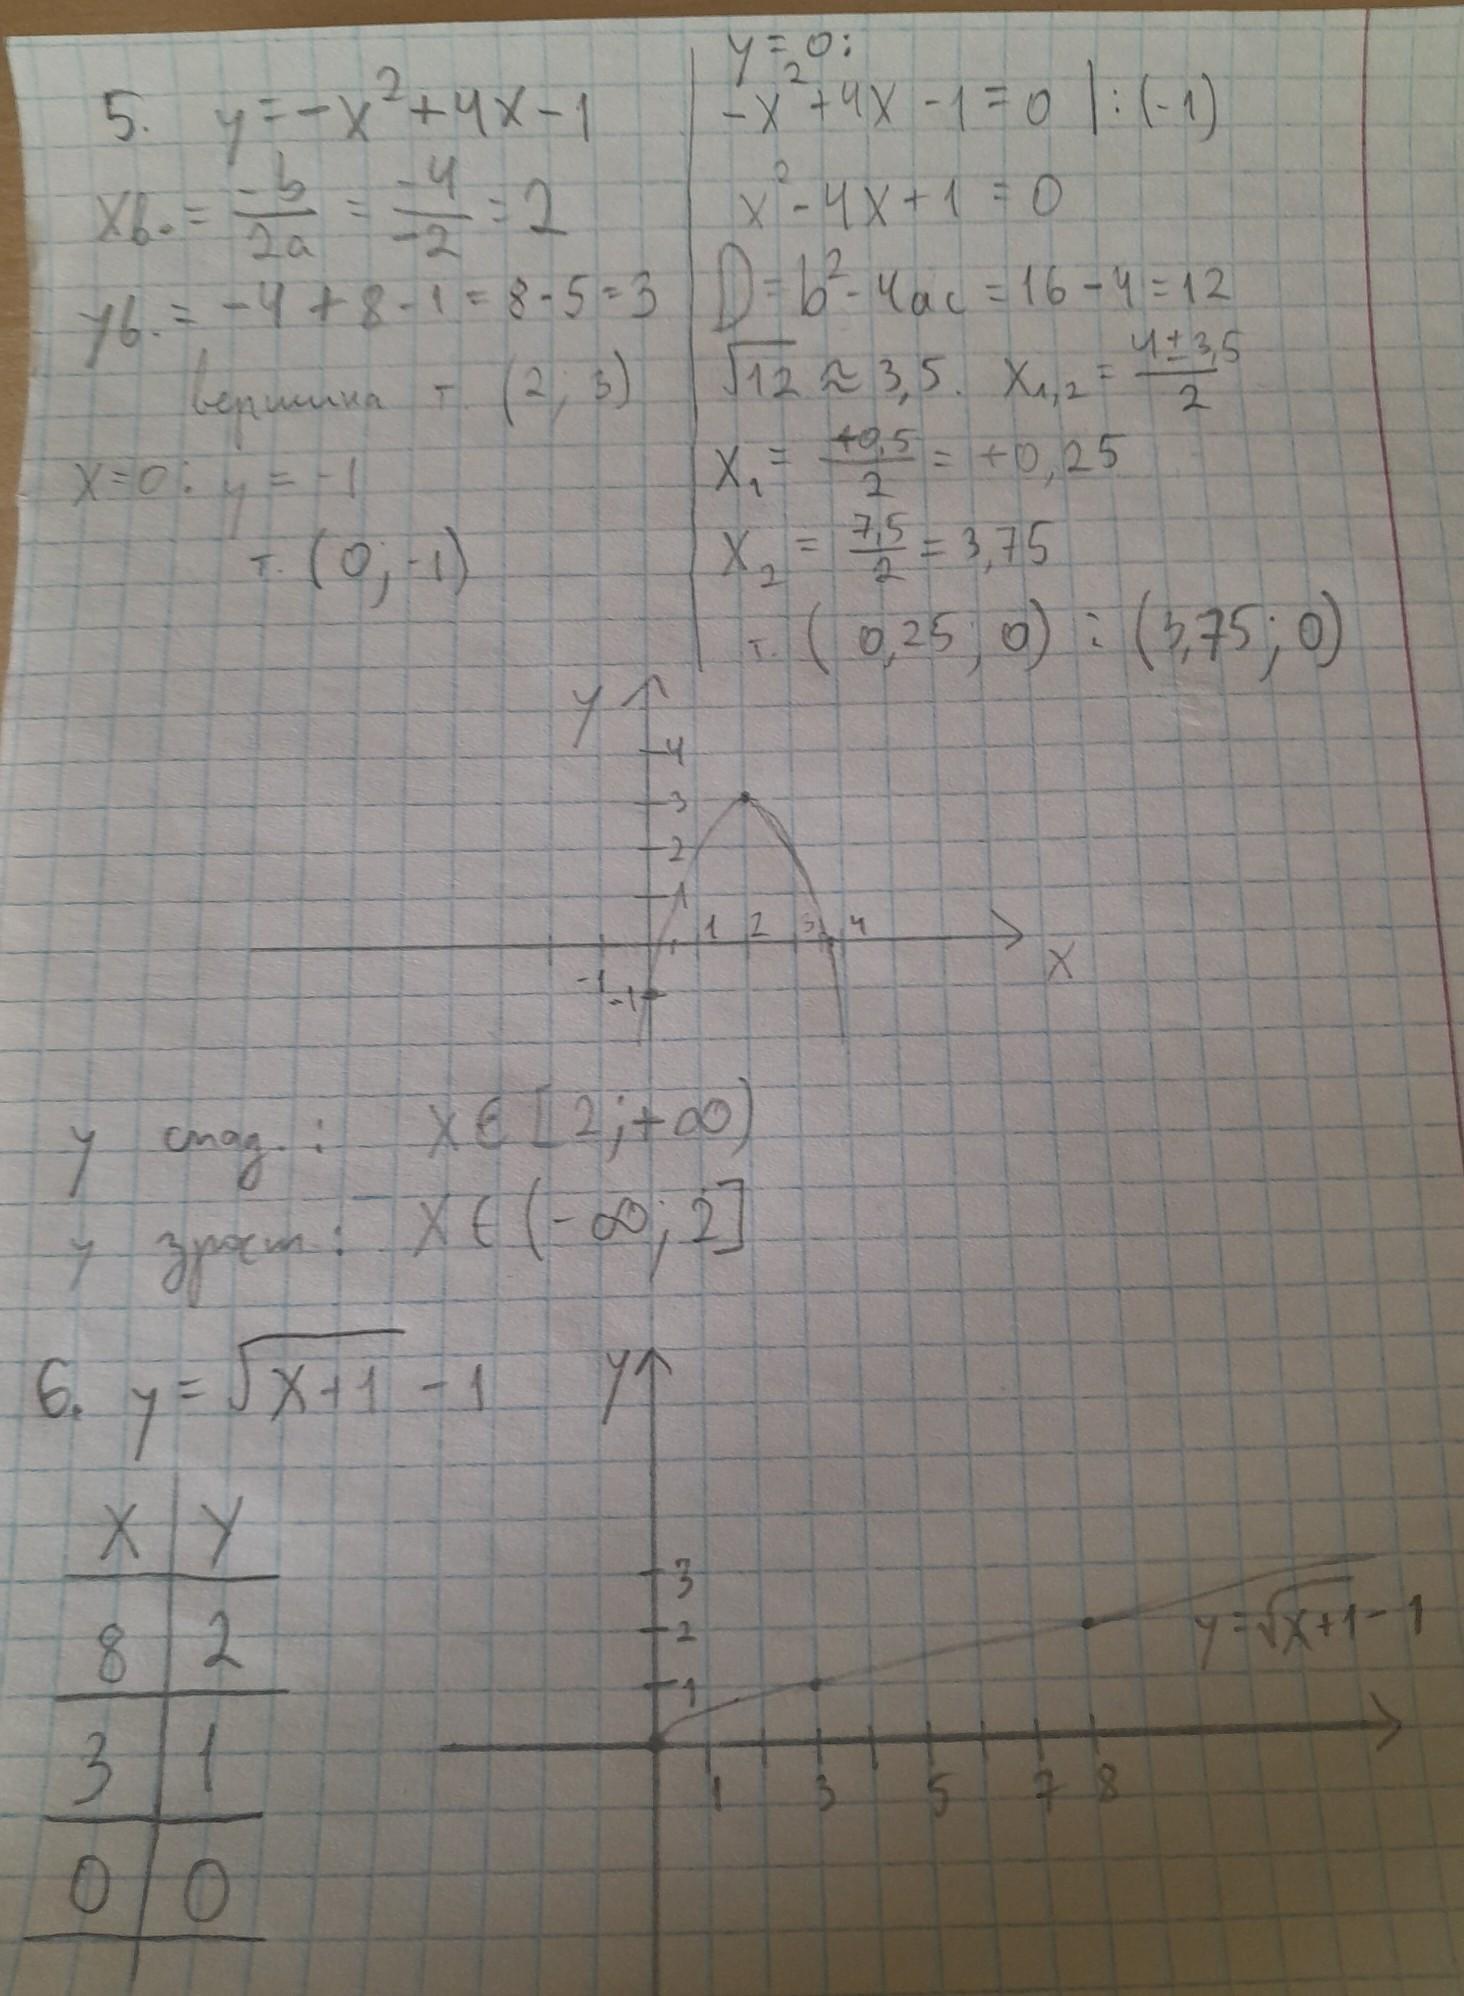 5. y = -x² + 4x - 1
xв. = -b/2a = -4/-2 = 2
yв. = -4 + 8 - 1 = 8 - 5 = 3
вершина т. (2; 3)
x=0: y = -1
т. (0; -1)
y = 0:
-x² + 4x - 1 = 0 | : (-1)
x² - 4x + 1 = 0
D = b² - 4ac = 16 - 4 = 12
√12 ≈ 3,5. x1,2 = 4 ± 3,5/2
x1 = +0,5/2 = +0,25
x2 = 7,5/2 = 3,75
т. (0,25; 0) : (3,75; 0)
y
4
3
2
1
1 2 3 4
x
-1
-1
y спад. : x ∈ [2; +∞)
y зрост : x ∈ (-∞; 2]
6. y = √x+1 - 1
x y
8 2
3 1
0 0
y
3
2
1
y = √x+1 - 1
1 3 5 7 8